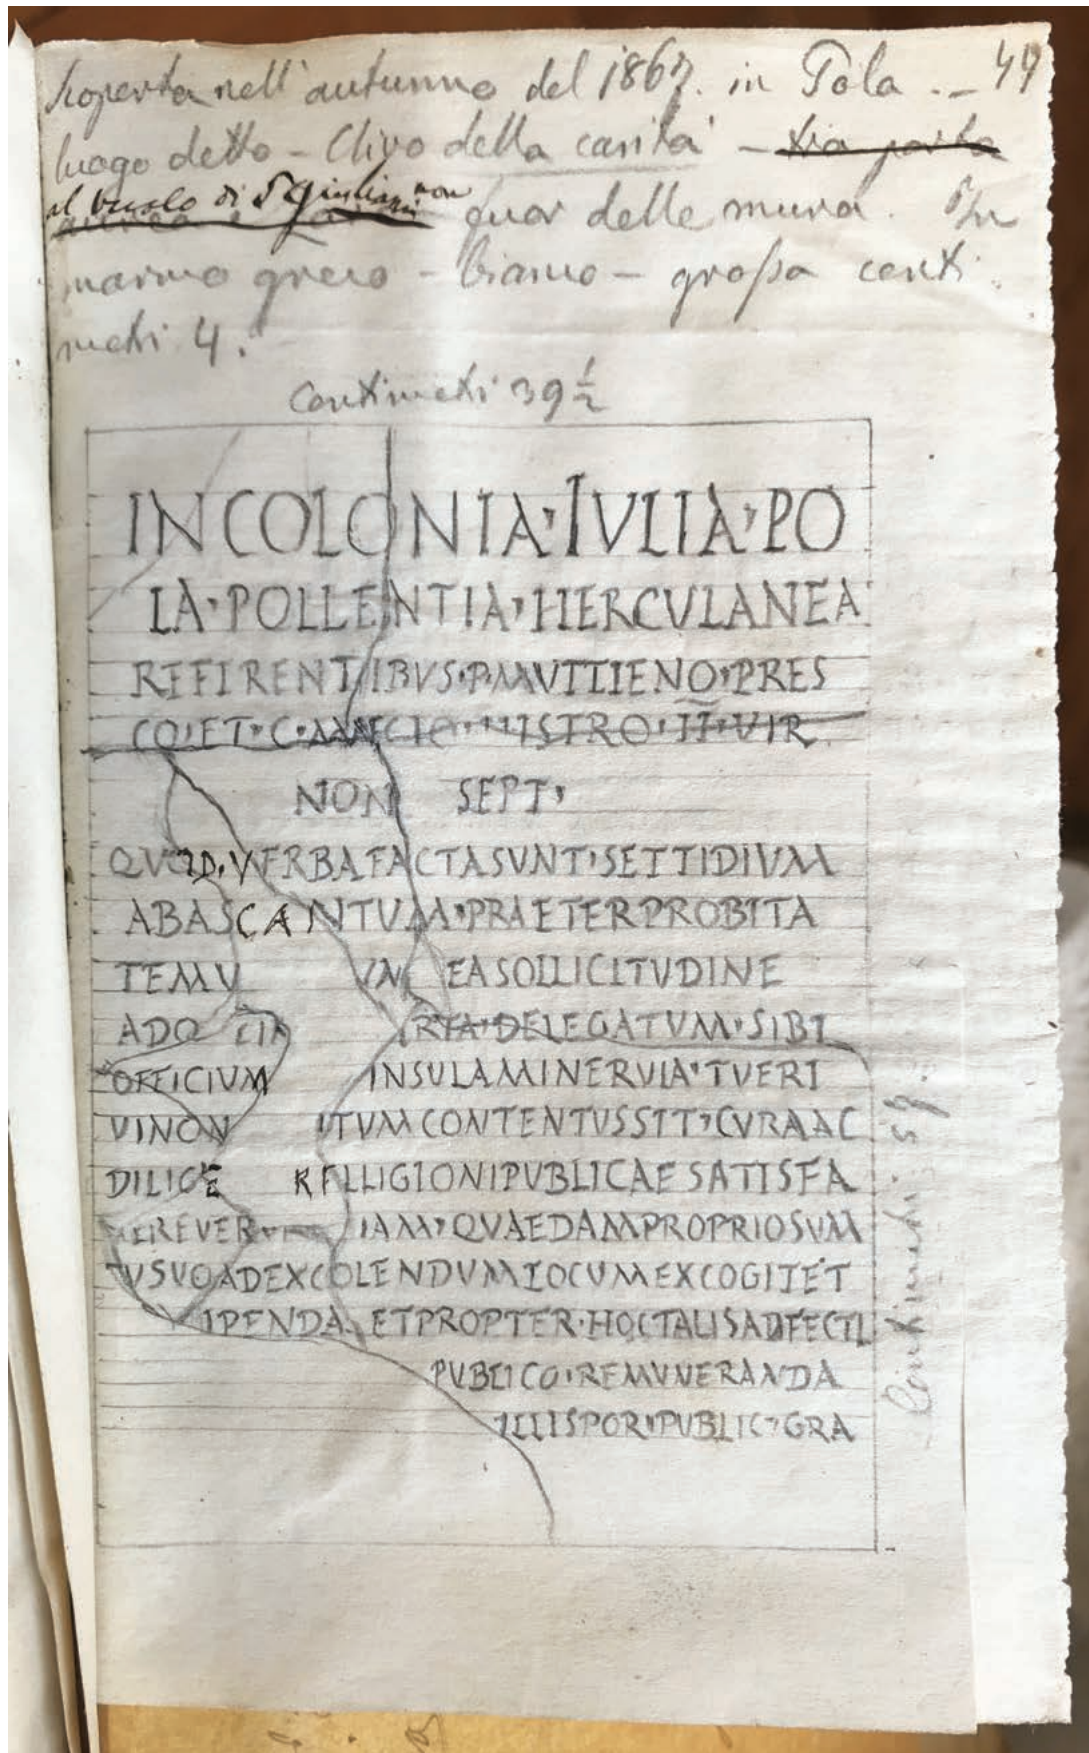 scoperta nell'autunno del 1867. in Pola. – 49
luogo detto – Clivo della carità – tra porta
al vicolo di S Giuliana non
fuor delle mura. Su
marmo greco – bianco – grossa centi
metri 4.
Centimetri 39 1/2
IN COLONIA · IVLIA · PO
LA · POLLENTIA · HERCVLANEA
REFIRENTIBVS · P · MVTTIENO · PRES
CO · ET · C · ANNCIO · IIISTRO · II · VIR
NON SEPT ·
QVOD · VERBA FACTA SVNT · SETTIDIVM
ABASCANTVM · PRAETER PROBITA
TEM V VN EA SOLLICITVDINE
ADQ ETIA RTA · DELEGATVM · SIBI
OFFICIVM INSVLA MINERVIA · TVERI
VI NON ITVM CONTENTVS SIT · CVRA AC
DILIGE RELLIGIONI PVBLICAE SATISFA
EREVER IAM · QVAEDAM PROPRIO SVM
TV SVO AD EXCOLENDVM LOCVM EXCOGITET
IPENDA ET PROPTER · HOC TALIS ADFECTL
PVBLICO · REMVNERANDA
ILLIS POR · PVBLIC · GRA
Centimetri 57.